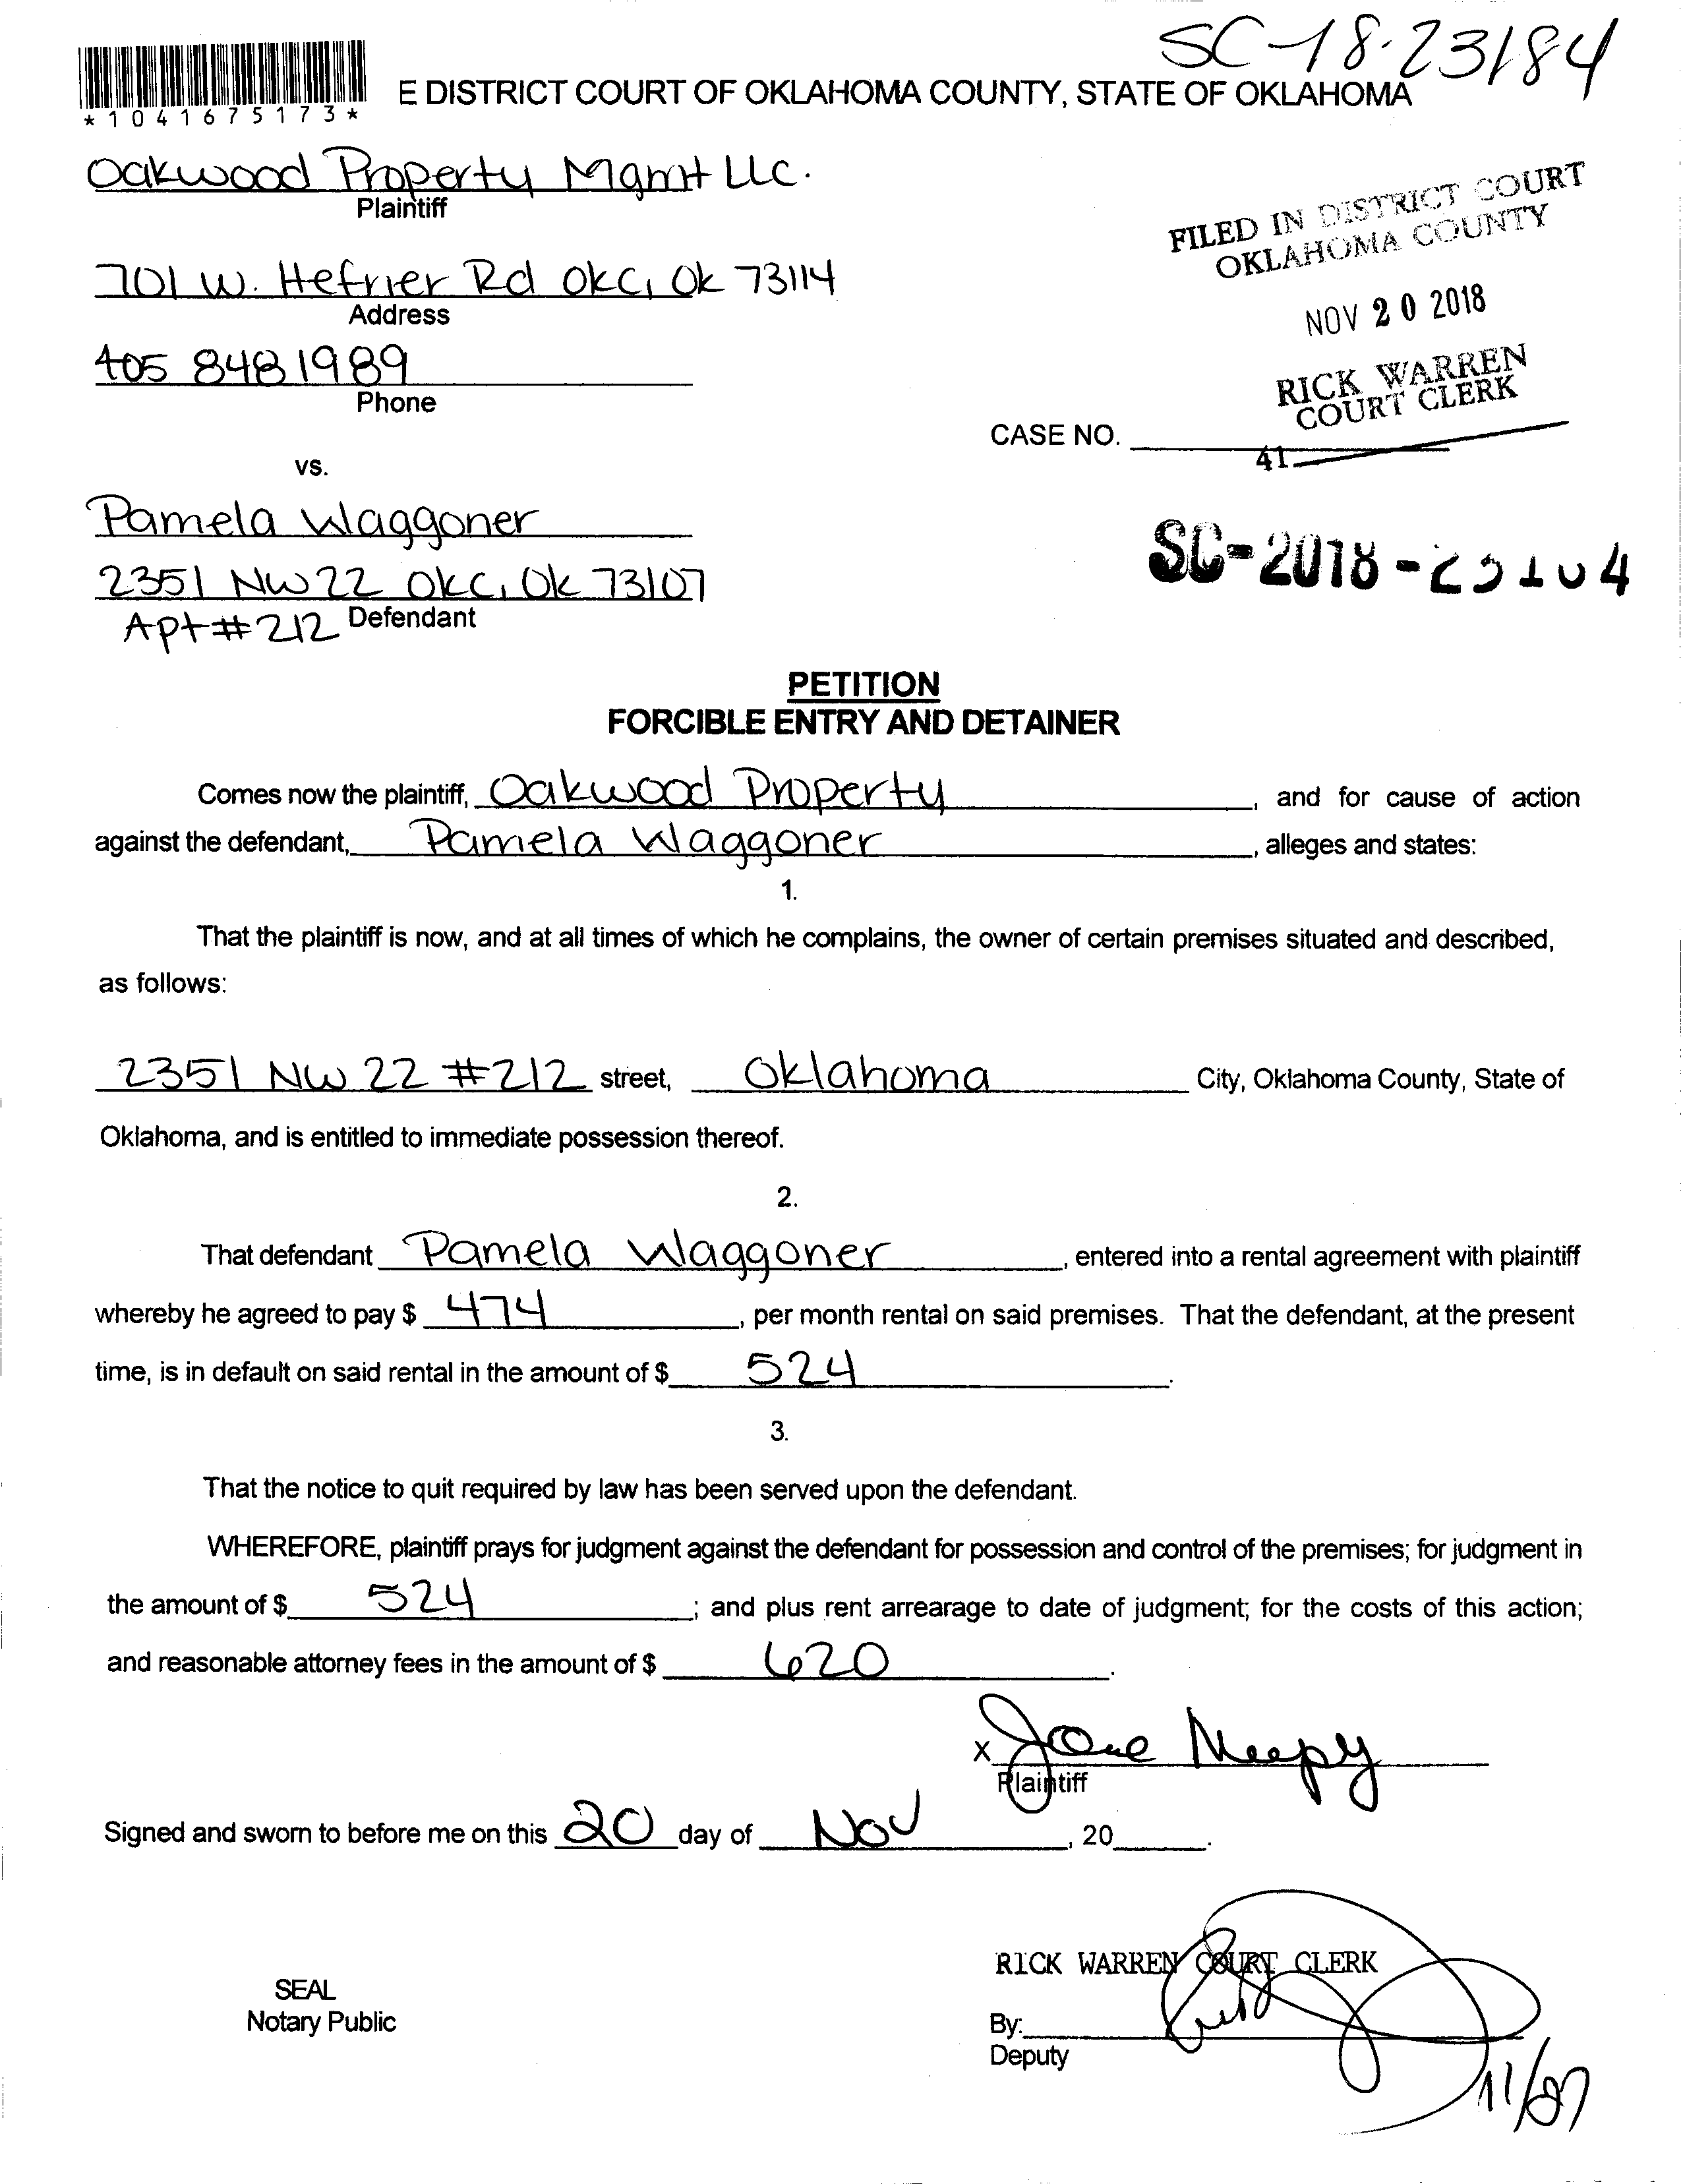 SC-18-23184
*1041675173*
E DISTRICT COURT OF OKLAHOMA COUNTY, STATE OF OKLAHOMA
Oakwood Property Mgmt LLC.
Plaintiff
FILED IN DISTRICT COURT
OKLAHOMA COUNTY
701 W. Hefner Rd OKC, OK 73114
Address
NOV 20 2018
405 848 1989
Phone
RICK WARREN
COURT CLERK
CASE NO.
41
vs.
Pamela Waggoner
2351 NW 22 OKC, Ok 73107
Apt #212 Defendant
SC-2018-
PETITION
FORCIBLE ENTRY AND DETAINER
Comes now the plaintiff, Oakwood Property, and for cause of action
against the defendant, Pamela Waggoner, alleges and states:
1.
That the plaintiff is now, and at all times of which he complains, the owner of certain premises situated and described,
as follows:
2351 NW 22 #212 street, Oklahoma City, Oklahoma County, State of
Oklahoma, and is entitled to immediate possession thereof.
2.
That defendant Pamela Waggoner, entered into a rental agreement with plaintiff
whereby he agreed to pay $ 474, per month rental on said premises. That the defendant, at the present
time, is in default on said rental in the amount of $ 524.
3.
That the notice to quit required by law has been served upon the defendant.
WHEREFORE, plaintiff prays for judgment against the defendant for possession and control of the premises; for judgment in
the amount of $ 524; and plus rent arrearage to date of judgment; for the costs of this action;
and reasonable attorney fees in the amount of $ 620.
x
Plaintiff
Signed and sworn to before me on this 20 day of Nov, 20 .
RICK WARREN COURT CLERK
SEAL
Notary Public
By:
Deputy
11/27